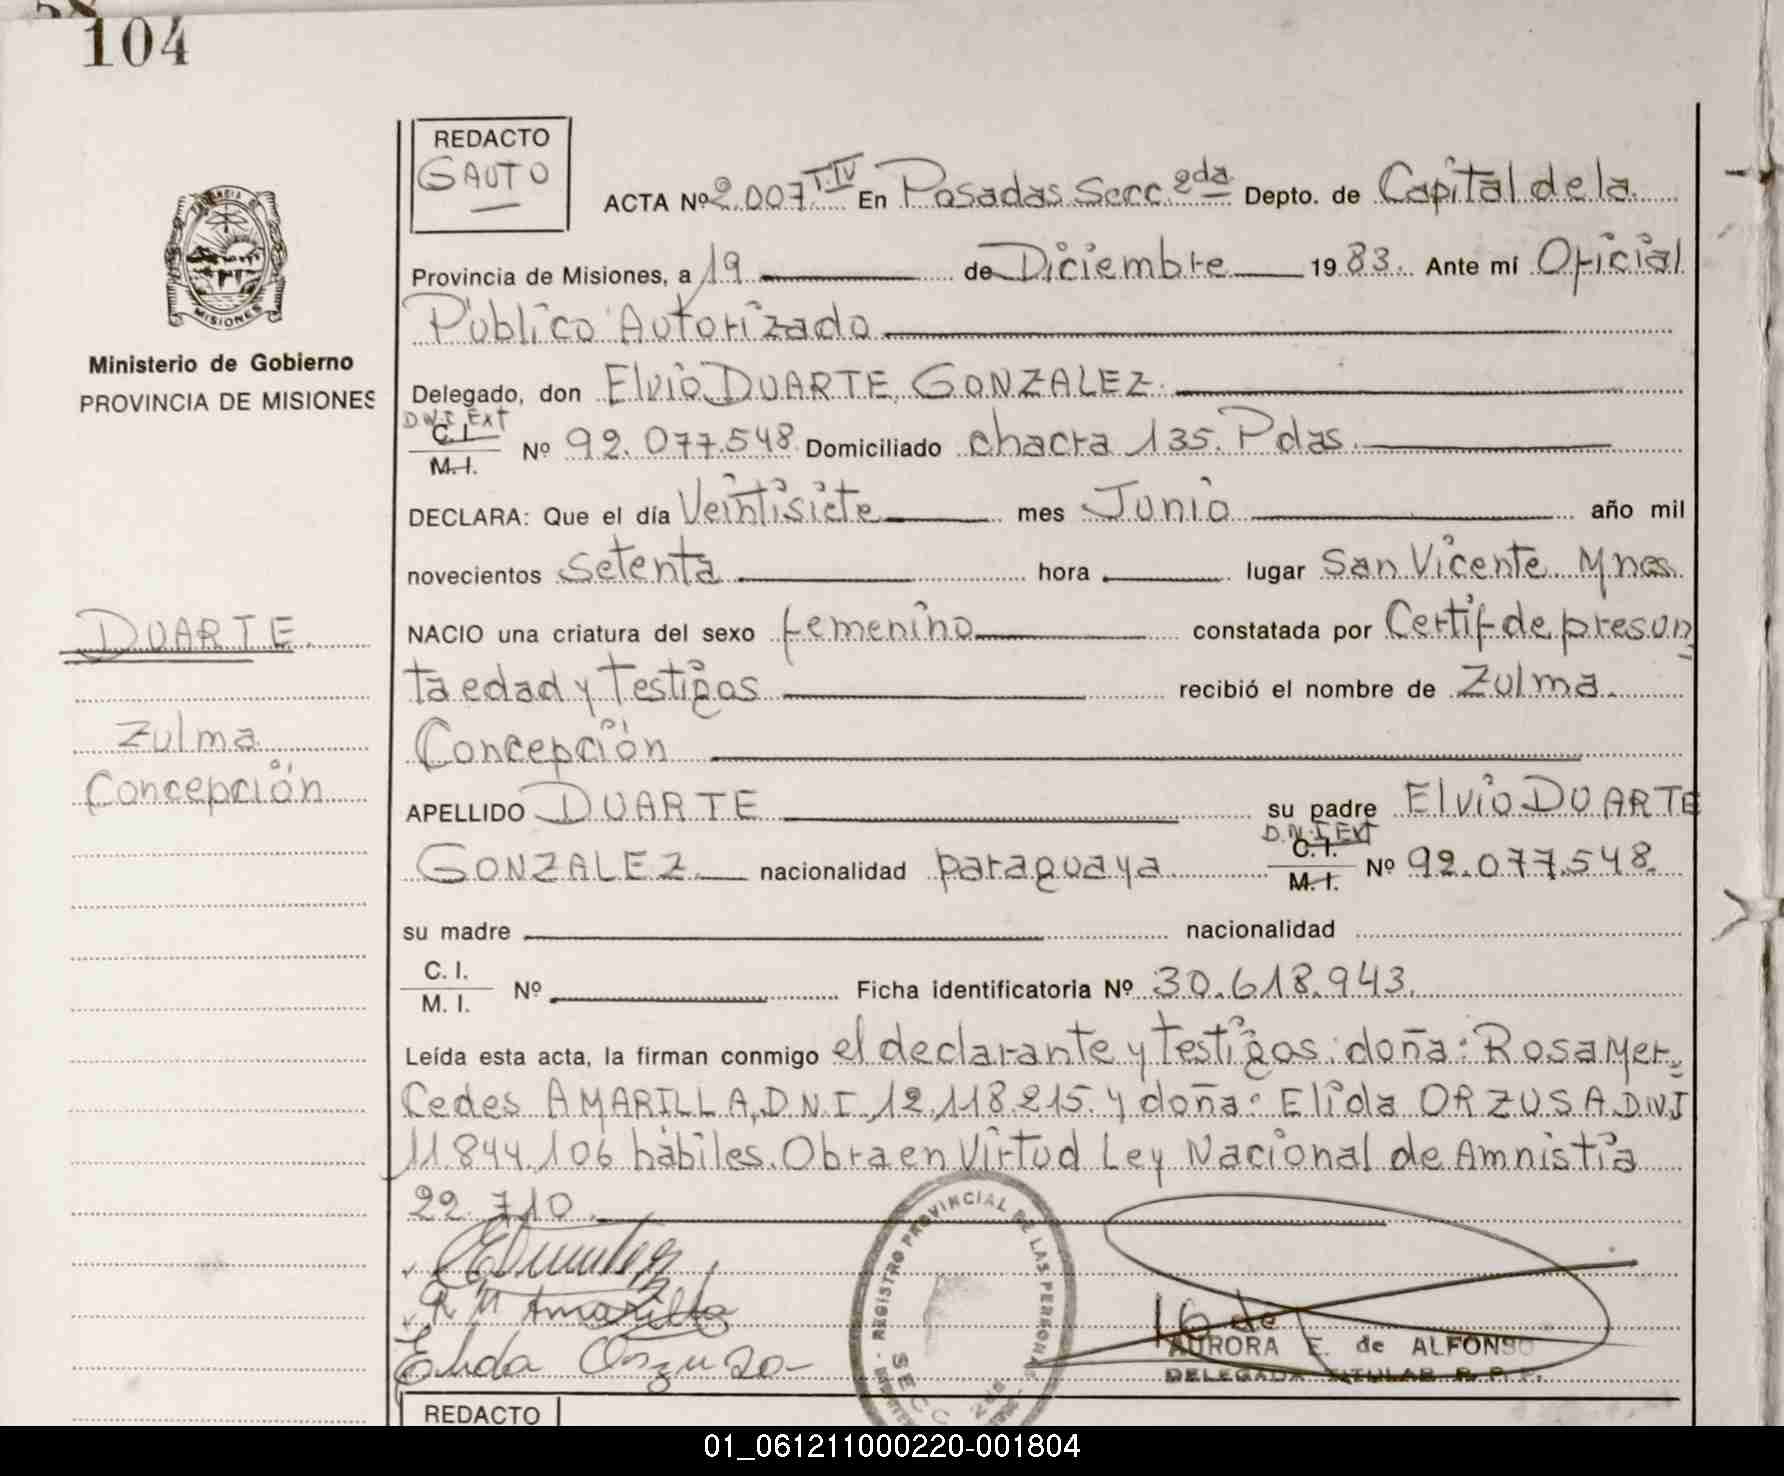 104
REDACTO
GAUTO
ACTA Nº 2.007 T.IV En Posadas Secc. 2da Depto. de Capital de la
Provincia de Misiones, a 19 de Diciembre 1983. Ante mí Oficial
Público Autorizado
Ministerio de Gobierno
PROVINCIA DE MISIONES
Delegado, don Elvio DUARTE GONZALEZ.
D.N.I. EXT
C.I.
M.I. Nº 92.077.548 Domiciliado chacra 135. Pdas.
DECLARA: Que el día Veintisiete mes Junio año mil
novecientos setenta hora lugar San Vicente Mnes.
DUARTE.
NACIO una criatura del sexo femenino constatada por Certif-de presun
ta edad y testigos recibió el nombre de Zulma
Zulma
Concepción
Concepción
APELLIDO DUARTE su padre Elvio DUARTE
D.N.I EXT
GONZALEZ nacionalidad paraguaya C.I. M.I. Nº 92.077.548.
su madre nacionalidad
C. I.
M. I. Nº Ficha identificatoria Nº 30.618.943.
Leída esta acta, la firman conmigo el declarante y testigos: doña: Rosa Mer
cedes AMARILLA, D.N.I. 12.118.215. y doña: Elida ORZUSA. D.N.I
11.844.106 hábiles. Obra en Virtud Ley Nacional de Amnistía
22.710.
R M Amarilla
Elida Orzusa
REGISTRO PROVINCIAL DE LAS PERSONAS
SECC 2da
16 de
AURORA E. de ALFONSO
DELEGADA TITULAR R. P. P.
REDACTO
01_061211000220-001804